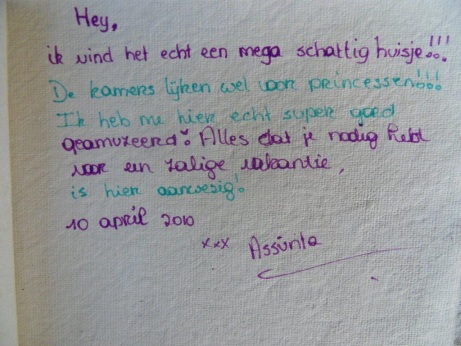 Hey,
ik vind het echt een mega schattig huisje!!!
De kamers lijken wel voor princessen!!!
Ik heb me hier echt super goed
geamuzeerd! Alles dat je nodig hebt
voor een zalige vakantie,
is hier aanwezig!
10 april 2010
xxx Assunta